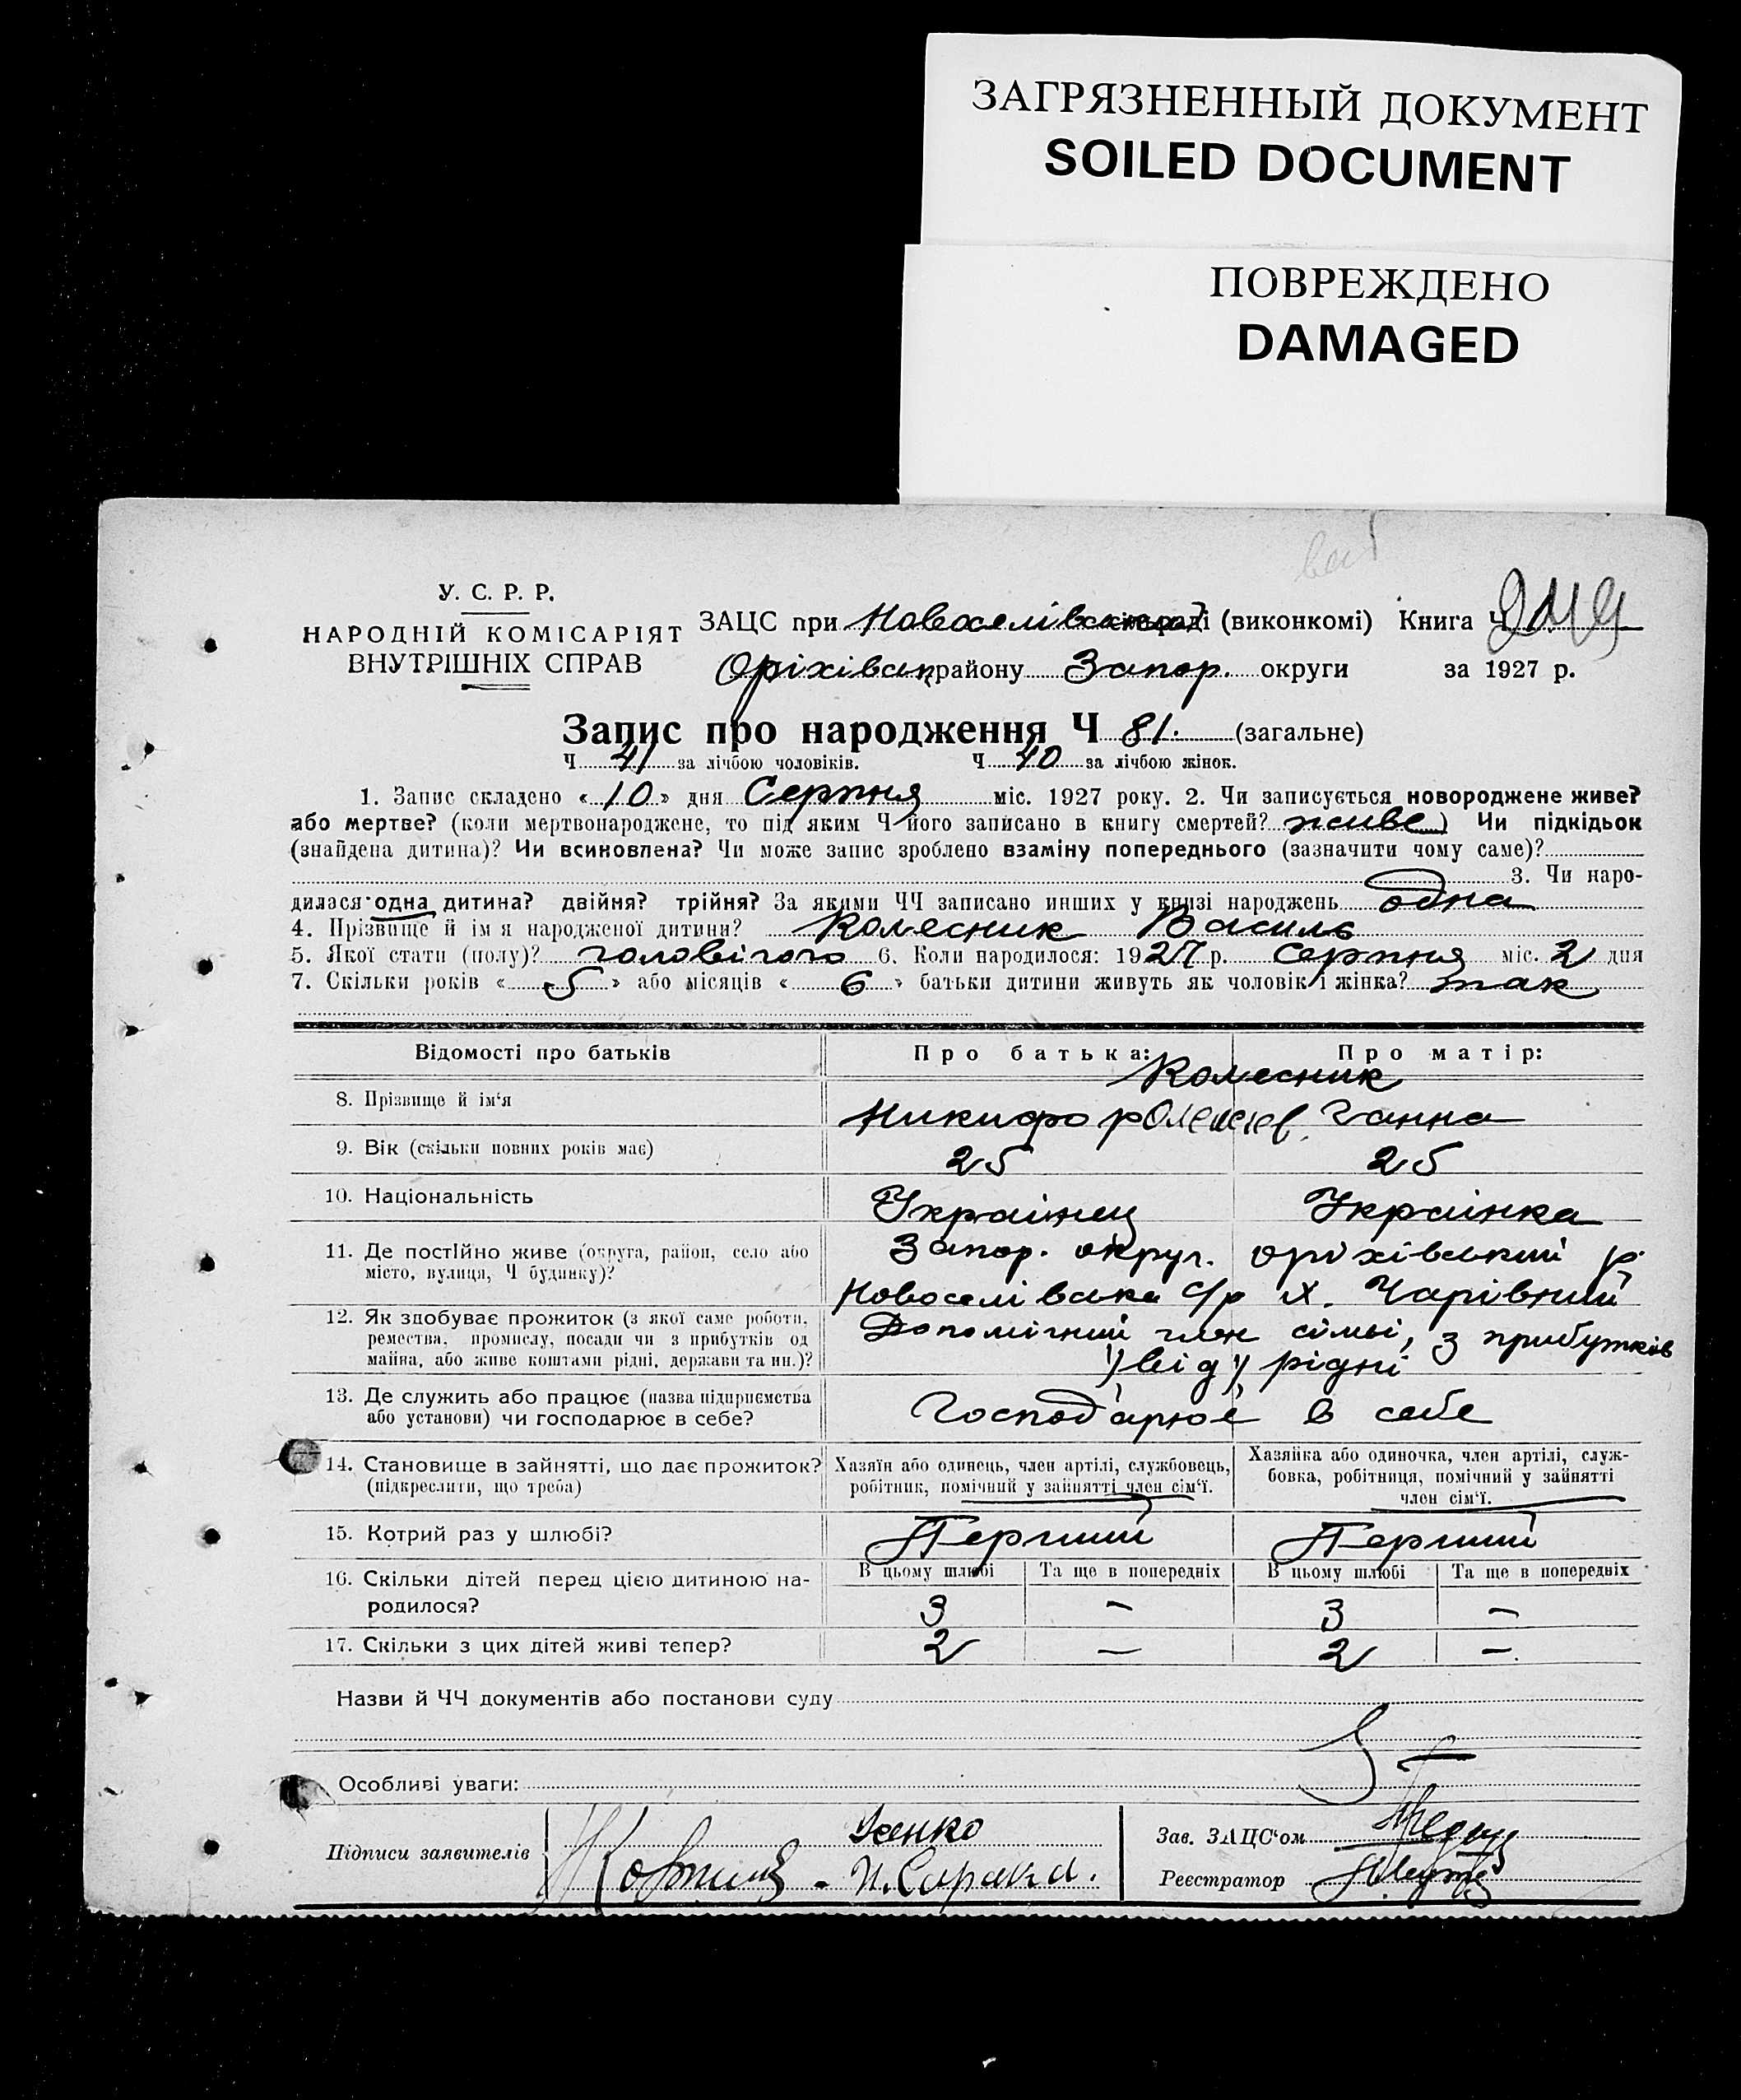 ЗАГРЯЗНЕННЫЙ ДОКУМЕНТ
SOILED DOCUMENT
ПОВРЕЖДЕНО
DAMAGED
У. С. Р. Р.
НАРОДНІЙ КОМІСАРІЯТ
ВНУТРІШНІХ СПРАВ
ЗАЦС при (виконкомі) Книга Ч
Оріхівск району Запор. округи за 1927 р.
Запис про народження Ч 81. (загальне)
Ч 41 за лічбою чоловіків. Ч 40 за лічбою жінок.
1. Запис складено «10» дня Серпня міс. 1927 року. 2. Чи записується новороджене живе?
або мертве? (коли мертвонароджене, то під яким Ч його записано в книгу смертей? живе) Чи підкідьок
(знайдена дитина)? Чи всиновлена? Чи може запис зроблено взаміну попереднього (зазначити чому саме)?
3. Чи наро-
дилася одна дитина? двійня? трійня? За якими ЧЧ записано инших у книзі народжень одна
4. Прізвище й ім я народженої дитини? Колесник Василь
5. Якої стати (полу)? чоловічого 6. Коли народилося: 1927 р. серпня міс. 2 дня
7. Скільки років «5» або місяців «6» батьки дитини живуть як чоловік і жінка? так
Відомості про батьків Про батька: Про матір:
Колесник
8. Прізвище й ім‘я Никифор Ганна
9. Вік (скільки повних років має) 25 25
10. Національність Українец Українка
11. Де постійно живе (округа, район, село або Запор. округ. оріхівський р.
місто, вулиця, Ч будинку)? Новоселівска с/р х. Чарівний
12. Як здобуває прожиток (з якої саме роботи, Допомічний член сімьі, з прибутків
ремества, промислу, посади чи з прибутків од
майна, або живе коштами рідні, держави та ин.)? від рідні
13. Де служить або працює (назва підприємства
або установи) чи господарює в себе? Господарює в себе
14. Становище в зайнятті, що дає прожиток? Хазяїн або одинець, член артілі, службовець, Хазяйка або одиночка, член артілі, служ-
(підкреслити, що треба) робітник, помічний у зайнятті член сім‘ї. бовка, робітниця, помічний у зайнятті
член сім‘ї.
15. Котрий раз у шлюбі? Перший Перший
16. Скільки дітей перед цією дитиною на- В цьому шлюбі Та ще в попередніх В цьому шлюбі Та ще в попередніх
родилося? 3 – 3 –
17. Скільки з цих дітей живі тепер? 2 – 2 –
Назви й ЧЧ документів або постанови суду
Особливі уваги:
Підписи заявителів
Зав. ЗАЦС‘ом
Реєстратор